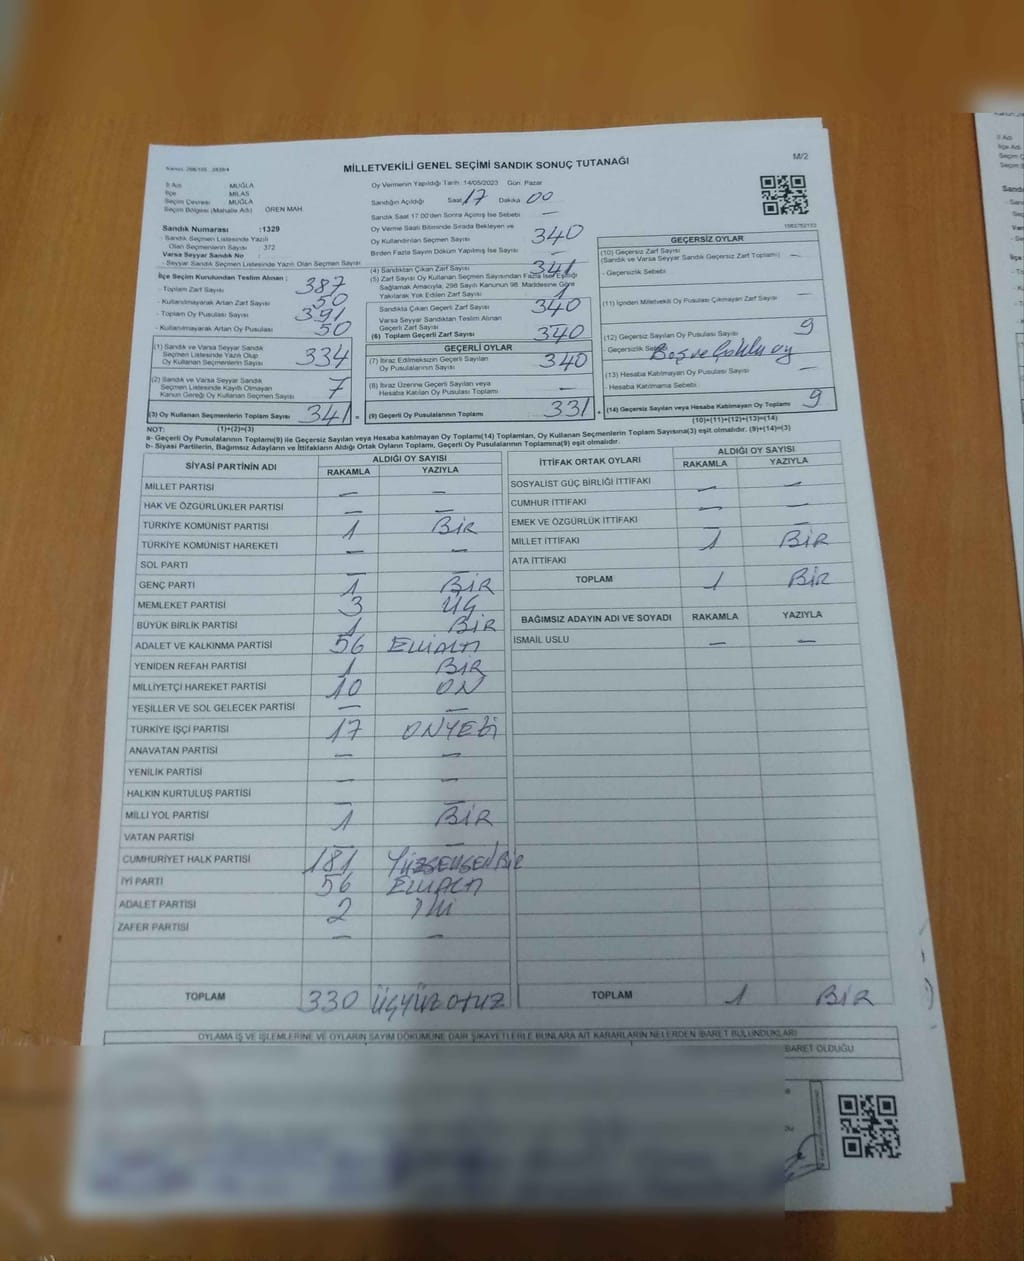 MİLLETVEKİLİ GENEL SEÇİMİ SANDIK SONUÇ TUTANAĞI
M/2
İl Adı MUĞLA
İlçe MİLAS
Seçim Çevresi MUĞLA
Seçim Bölgesi (Mahalle Adı) ÖREN MAH.
Sandık Numarası :1329
- Sandık Seçmen Listesinde Yazılı
Olan Seçmenlerin Sayısı : 372
Varsa Seyyar Sandık No :
- Seyyar Sandık Seçmen Listesinde Yazılı Olan Seçmen Sayısı
İlçe Seçim Kurulundan Teslim Alınan ;
- Toplam Zarf Sayısı 387
- Kullanılmayarak Artan Zarf Sayısı 50
- Toplam Oy Pusulası Sayısı 391
- Kullanılmayarak Artan Oy Pusulası 50
(1) Sandık ve Varsa Seyyar Sandık
Seçmen Listesinde Yazılı Olup
Oy Kullanan Seçmenlerin Sayısı 334
(2) Sandık ve Varsa Seyyar Sandık
Seçmen Listesinde Kayıtlı Olmayan
Kanun Gereği Oy Kullanan Seçmenlerin Sayısı 7
(3) Oy Kullanan Seçmenlerin Toplam Sayısı 341 =
Oy Vermenin Yapıldığı Tarih :14/05/2023 Gün: Pazar
Sandığın Açıldığı Saat 17 Dakika 00
Sandık Saat 17.00'den Sonra Açılmış İse Sebebi —
Oy Verme Saati Bitiminde Sırada Bekleyen ve
Oy Kullandırılan Seçmen Sayısı 340
Birden Fazla Sayım Döküm Yapılmış İse Sayısı —
(4) Sandıktan Çıkan Zarf Sayısı 341
(5) Zarf Sayısı Oy Kullanan Seçmen Sayısından Fazla İse; Eşitliği
Sağlamak Amacıyla, 298 Sayılı Kanunun 98. Maddesine Göre
Yakılarak Yok Edilen Zarf Sayısı 1
Sandıkta Çıkan Geçerli Zarf Sayısı 340
Varsa Seyyar Sandıktan Teslim Alınan
Geçerli Zarf Sayısı
(6) Toplam Geçerli Zarf Sayısı 340
GEÇERLİ OYLAR
(7) İtiraz Edilmeksizin Geçerli Sayılan
Oy Pusulalarının Sayısı 340
(8) İtiraz Üzerine Geçerli Sayılan veya
Hesaba Katılan Oy Pusulası Toplamı —
(9) Geçerli Oy Pusulalarının Toplamı 331 +
GEÇERSİZ OYLAR
(10) Geçersiz Zarf Sayısı
(Sandık ve Varsa Seyyar Sandık Geçersiz Zarf Toplamı) —
- Geçersizlik Sebebi :
(11) İçinden Milletvekili Oy Pusulası Çıkmayan Zarf Sayısı —
(12) Geçersiz Sayılan Oy Pusulası Sayısı 9
- Geçersizlik Sebebi Boş ve Çoklu oy
(13) Hesaba Katılmayan Oy Pusulası Sayısı —
- Hesaba Katılmama Sebebi :
(14) Geçersiz Sayılan veya Hesaba Katılmayan Oy Toplamı 9
NOT: (1)+(2)=(3) (10)+(11)+(12)+(13)=(14)
a- Geçerli Oy Pusulalarının Toplamı(9) ile Geçersiz Sayılan veya Hesaba katılmayan Oy Toplam(14) Toplamları, Oy Kullanan Seçmenlerin Toplam Sayısına(3) eşit olmalıdır. (9)+(14)=(3)
b- Siyasi Partilerin, Bağımsız Adayların ve İttifakların Aldığı Ortak Oyların Toplamı, Geçerli Oy Pusulalarının Toplamına(9) eşit olmalıdır.
SİYASİ PARTİNİN ADI ALDIĞI OY SAYISI
RAKAMLA YAZIYLA
MİLLET PARTİSİ — —
HAK VE ÖZGÜRLÜKLER PARTİSİ — —
TÜRKİYE KOMÜNİST PARTİSİ 1 BİR
TÜRKİYE KOMÜNİST HAREKETİ — —
SOL PARTİ — —
GENÇ PARTİ 1 BİR
MEMLEKET PARTİSİ 3 ÜÇ
BÜYÜK BİRLİK PARTİSİ 1 BİR
ADALET VE KALKINMA PARTİSİ 56 ELLİALTI
YENİDEN REFAH PARTİSİ 1 BİR
MİLLİYETÇİ HAREKET PARTİSİ 10 ON
YEŞİLLER VE SOL GELECEK PARTİSİ — —
TÜRKİYE İŞÇİ PARTİSİ 17 ONYEDİ
ANAVATAN PARTİSİ — —
YENİLİK PARTİSİ — —
HALKIN KURTULUŞ PARTİSİ — —
MİLLİ YOL PARTİSİ 1 BİR
VATAN PARTİSİ — —
CUMHURİYET HALK PARTİSİ 181 YÜZSEKSENBİR
İYİ PARTİ 56 ELLİALTI
ADALET PARTİSİ 2 İKİ
ZAFER PARTİSİ — —
TOPLAM 330 ÜÇYÜZOTUZ
İTTİFAK ORTAK OYLARI ALDIĞI OY SAYISI
RAKAMLA YAZIYLA
SOSYALİST GÜÇ BİRLİĞİ İTTİFAKI — —
CUMHUR İTTİFAKI — —
EMEK VE ÖZGÜRLÜK İTTİFAKI — —
MİLLET İTTİFAKI 1 BİR
ATA İTTİFAKI
TOPLAM 1 BİR
BAĞIMSIZ ADAYIN ADI VE SOYADI RAKAMLA YAZIYLA
İSMAİL USLU — —
TOPLAM 1 BİR
OYLAMA İŞ VE İŞLEMLERİNE VE OYLARIN SAYIM DÖKÜMÜNE DAİR ŞİKAYETLERLE BUNLARA AİT KARARLARIN NELERDEN İBARET BULUNDUKLARI
BARET OLDUĞU